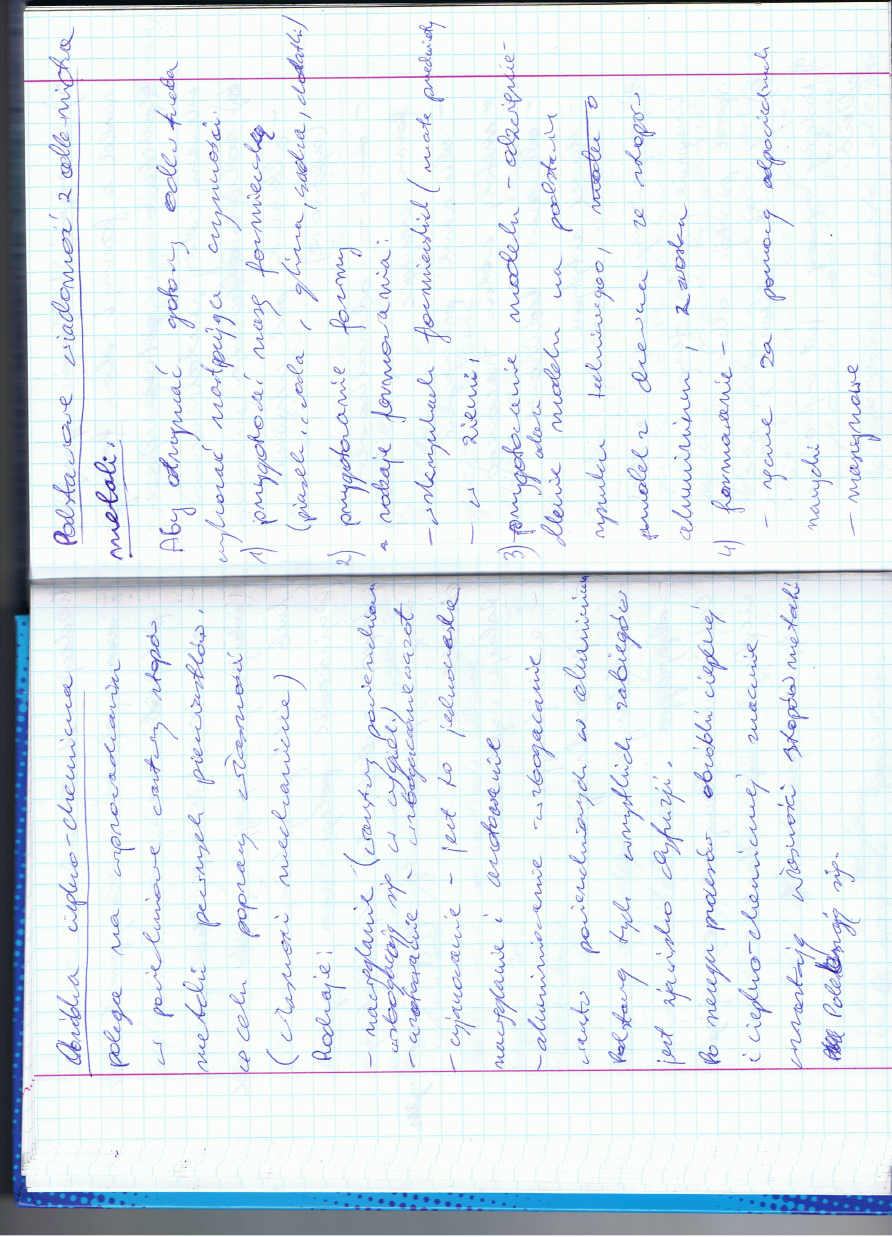 Obróbka cieplno-chemiczna
polega na wprowadzaniu
w powierzchniowe warstwy stopów
metali pewnych pierwiastków,
w celu poprawy własności
(własności mechaniczne)
Rodzaje:
- nawęglanie (warstwy powierzchniowe
wzbogacają się w węgiel)
- azotowanie - wzbogacanie w azot
- cyjanowanie - jest to jednoczesne
nawęglanie i azotowanie
- aluminiowanie - wzbogacanie
warstw powierzchniowych w aluminium
Podstawą tych wszystkich zabiegów
jest zjawisko dyfuzji.
Po nowych procesów obróbki cieplnej
i cieplno-chemicznej znacznie
wzrastają własności stopów metali
się.
Podstawowe wiadomości z odlewnictwa
metali.
Aby otrzymać gotowy odlew trzeba
wykonać następujące czynności:
1) przygotować masę formierską
(piasek, woda, glina, sadza, dodatki)
2) przygotowanie formy
rodzaje formowania:
- w skrzynkach formierskich (małe przedmioty
- w ziemi,
3) przygotowanie modelu - odzwierciedlenie modelu na podstawie
rysunku technicznego,
model z drewna ze stopów
aluminium, z wosku
4) formowanie -
- ręczne za pomocą odpowiednich
narzędzi
- maszynowe